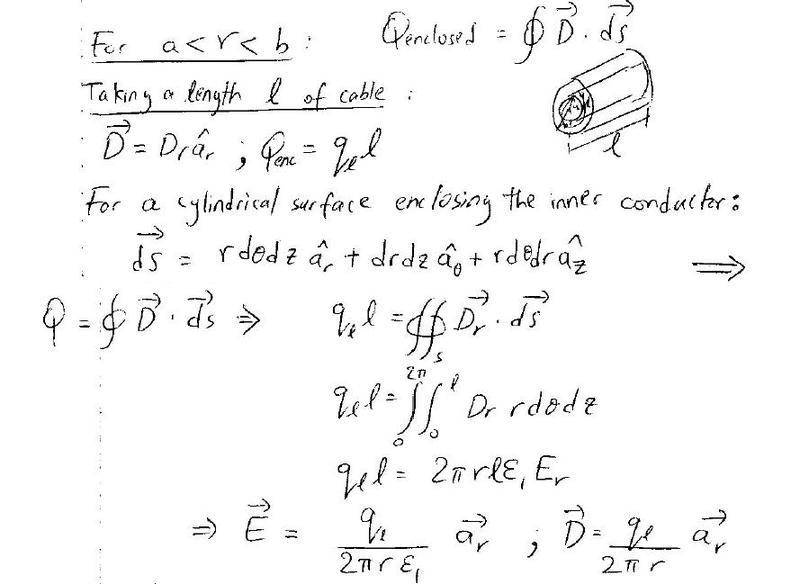 For a < r < b : Qenclosed = ∮ D⃗ · ds⃗
Taking a length l of cable :
l
D⃗ = Dr âr ; Qenc = qℓ l
For a cylindrical surface enclosing the inner conductor :
ds⃗ = r dθ dz âr + dr dz âθ + r dθ dr âz ⟹
Q = ∮ D⃗ · ds⃗ ⇒ qℓ l = ∯s D⃗r · ds⃗
qℓ l = ∫₀^2π ∫₀^l Dr r dθ dz
qℓ l = 2π r l ε₁ Er
⇒ E⃗ = qℓ / 2π r ε₁ a⃗r ; D⃗ = qℓ / 2π r a⃗r